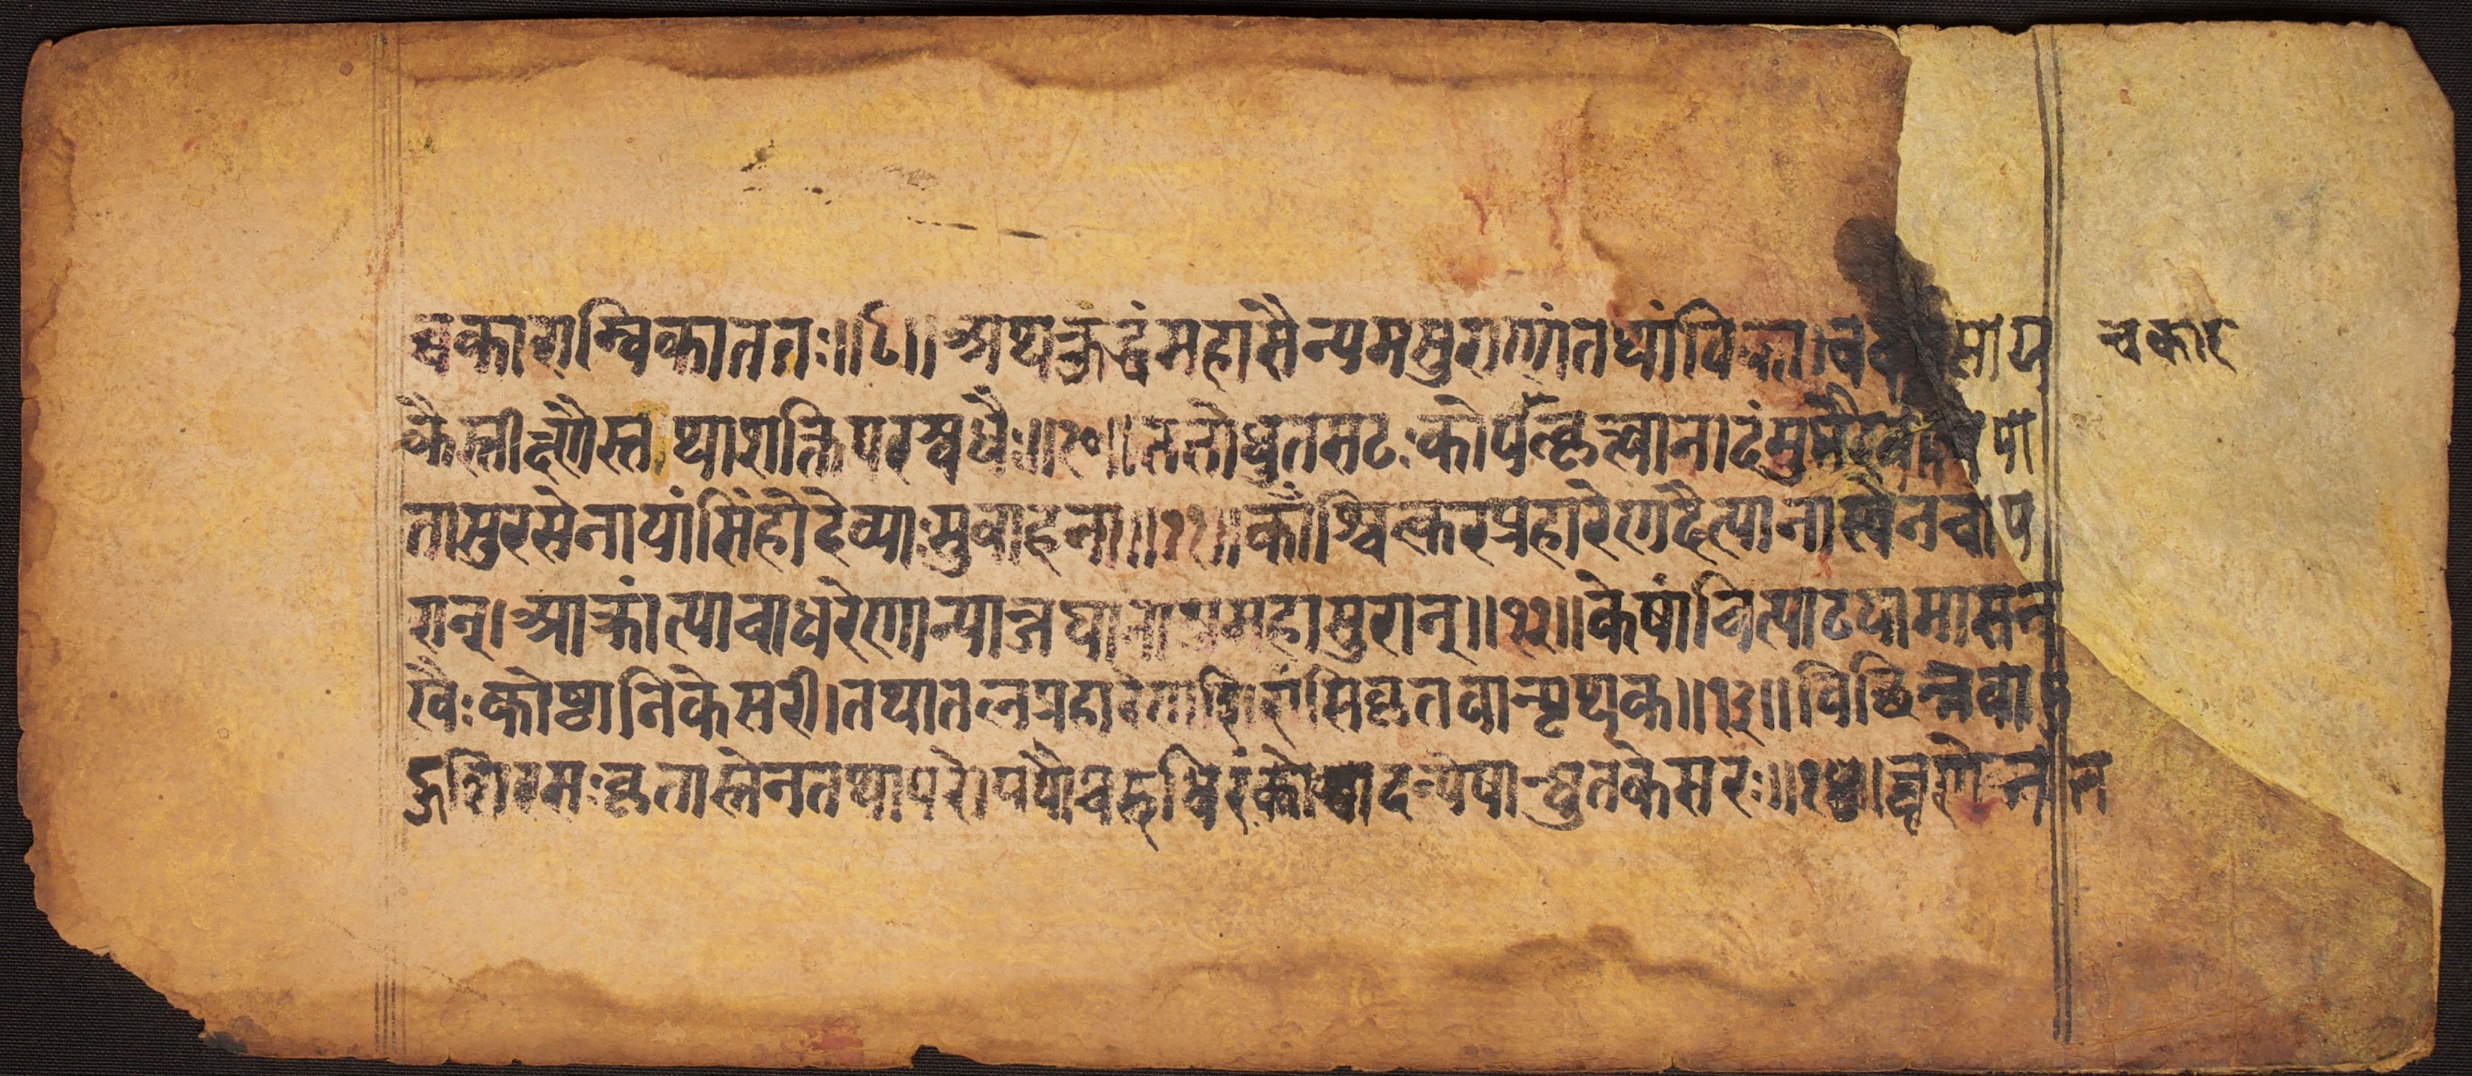 चकाराम्विकाततः॥९॥अथक्रुद्धंमहासैन्यमसुराणांतथांविका।व साय चकार
कैस्तीक्ष्णैस्तथाशक्तिपरस्वधैः॥१०॥ततोधुतसटःकोपत्कृत्वानादंसुभैरवं पपा
तासुरसेनायांसिंहोदेव्याःसुवाहना॥११॥कांश्चित्करप्रहारेणदैत्यानास्येनचाप
रान्।आक्रांत्याचाधरेणान्याञ्जघानाशुमहासुरान्॥१२॥केषांचित्पाटयामासन
खैःकोष्ठानिकेसरी।तथातलप्रहारेणशिरांसिकृतवान्पृथक॥१३॥विछिन्नवाहु
शिरसःकृतास्तेनतथापरे।पपौचरुधिरंकोष्ठादन्येषान्धुतकेसरः॥१४॥क्षणेनत